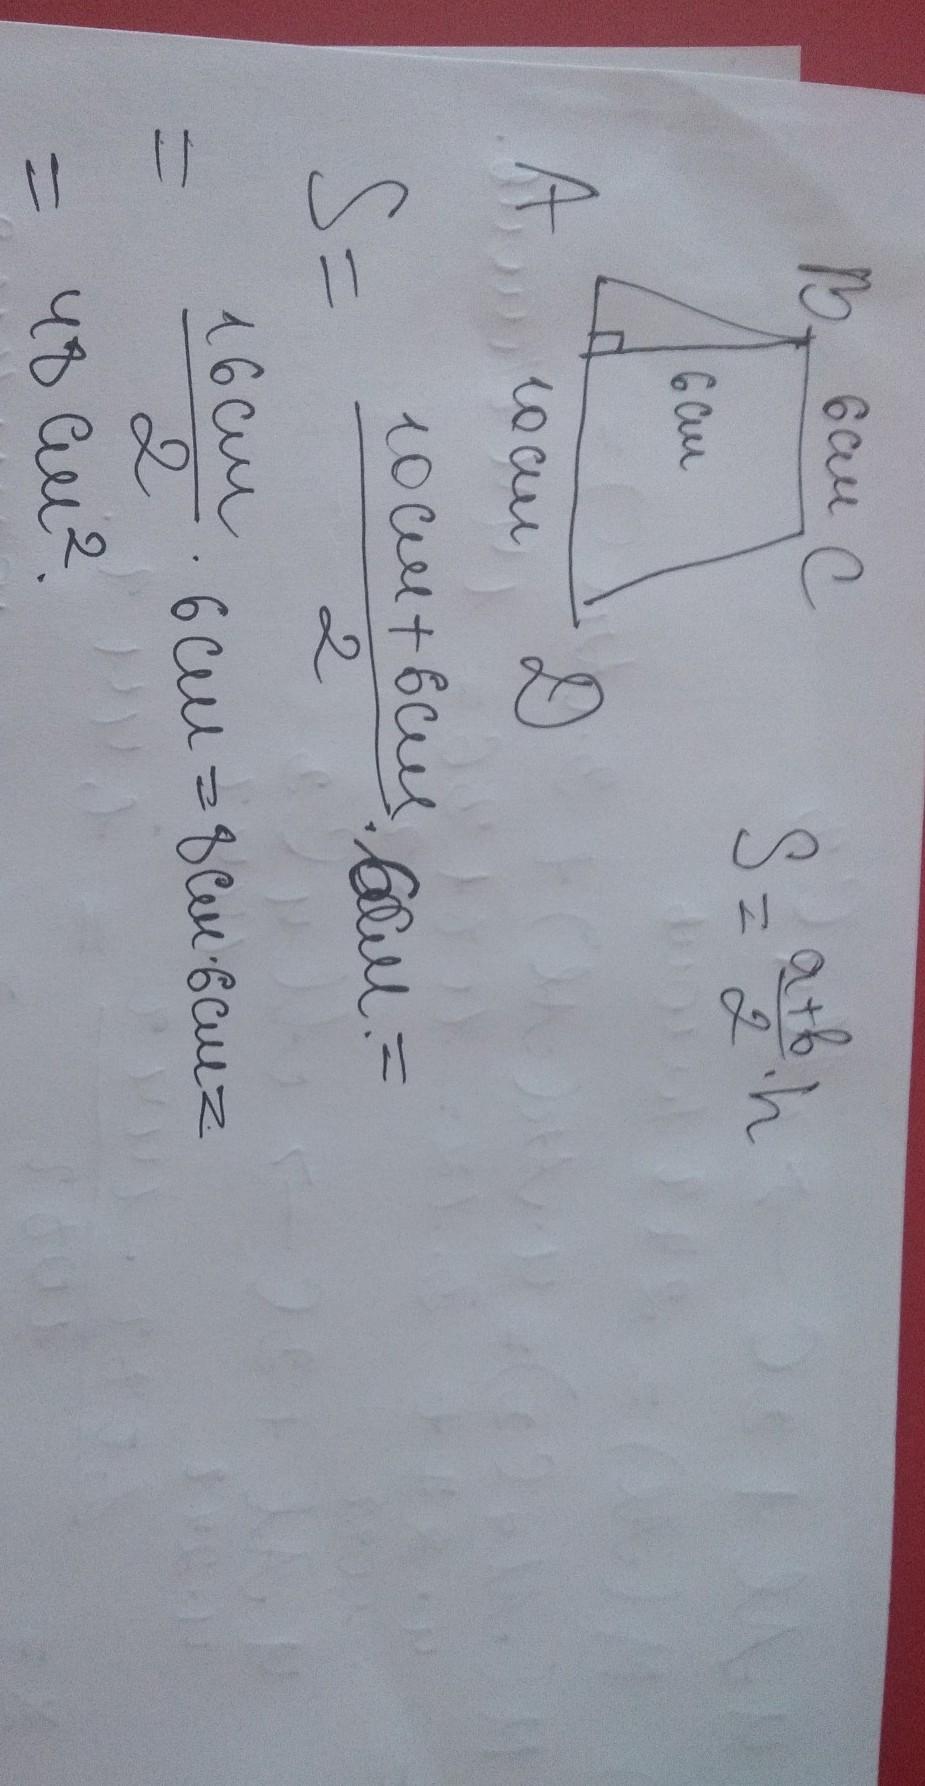 B 6 см C
6 см
A 10 см D
S = a+b/2 · h
S = 10 см + 6 см/2 · 6 см. =
= 16 см/2 · 6 см = 8 см · 6 см =
= 48 см².